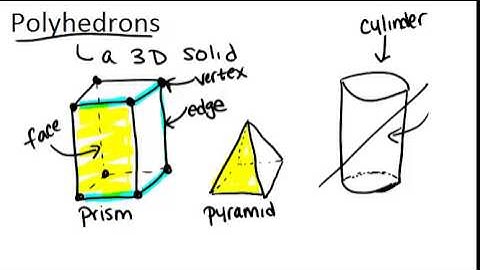 Polyhedrons
a 3D solid
cylinder
vertex
edge
face
prism
pyramid